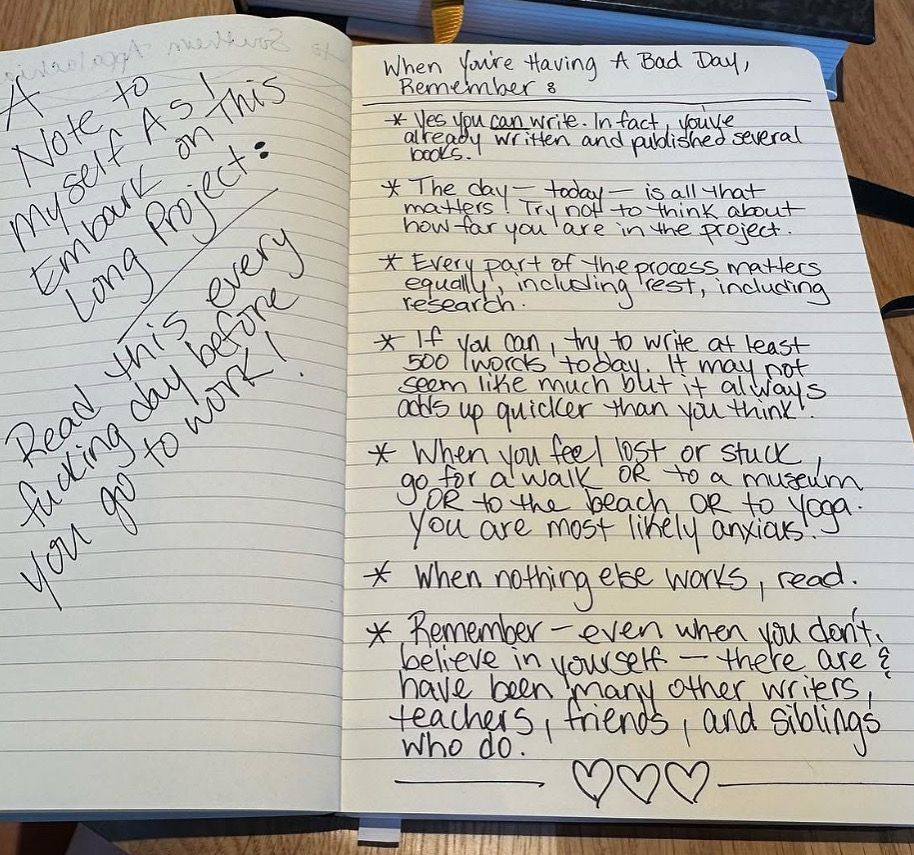 to Southern Appalachia
A
Note to
myself As I
Embark on this
Long Project:
Read this every
fucking day before
you go to work!
When You're Having A Bad Day,
Remember:
* Yes you can write. In fact, you've
already written and published several
books.
* The day - today - is all that
matters! Try not to think about
how far you are in the project.
* Every part of the process matters
equally, including rest, including
research.
* If you can, try to write at least
500 words today. It may not
seem like much but it always
adds up quicker than you think!
* When you feel lost or stuck,
go for a walk OR to a museum
OR to the beach OR to yoga.
You are most likely anxious.
* When nothing else works, read.
* Remember - even when you don't
believe in yourself - there are &
have been many other writers,
teachers, friends, and siblings
who do.